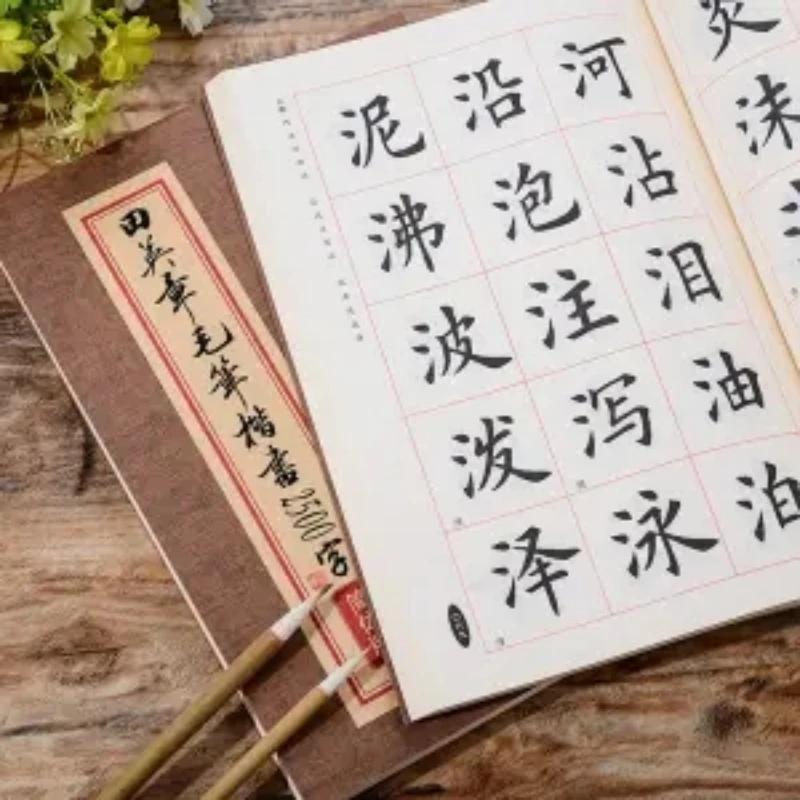 田英章毛筆楷書2500字
河沾泪油泊
沿泡注泻泳
泥沸波泼泽